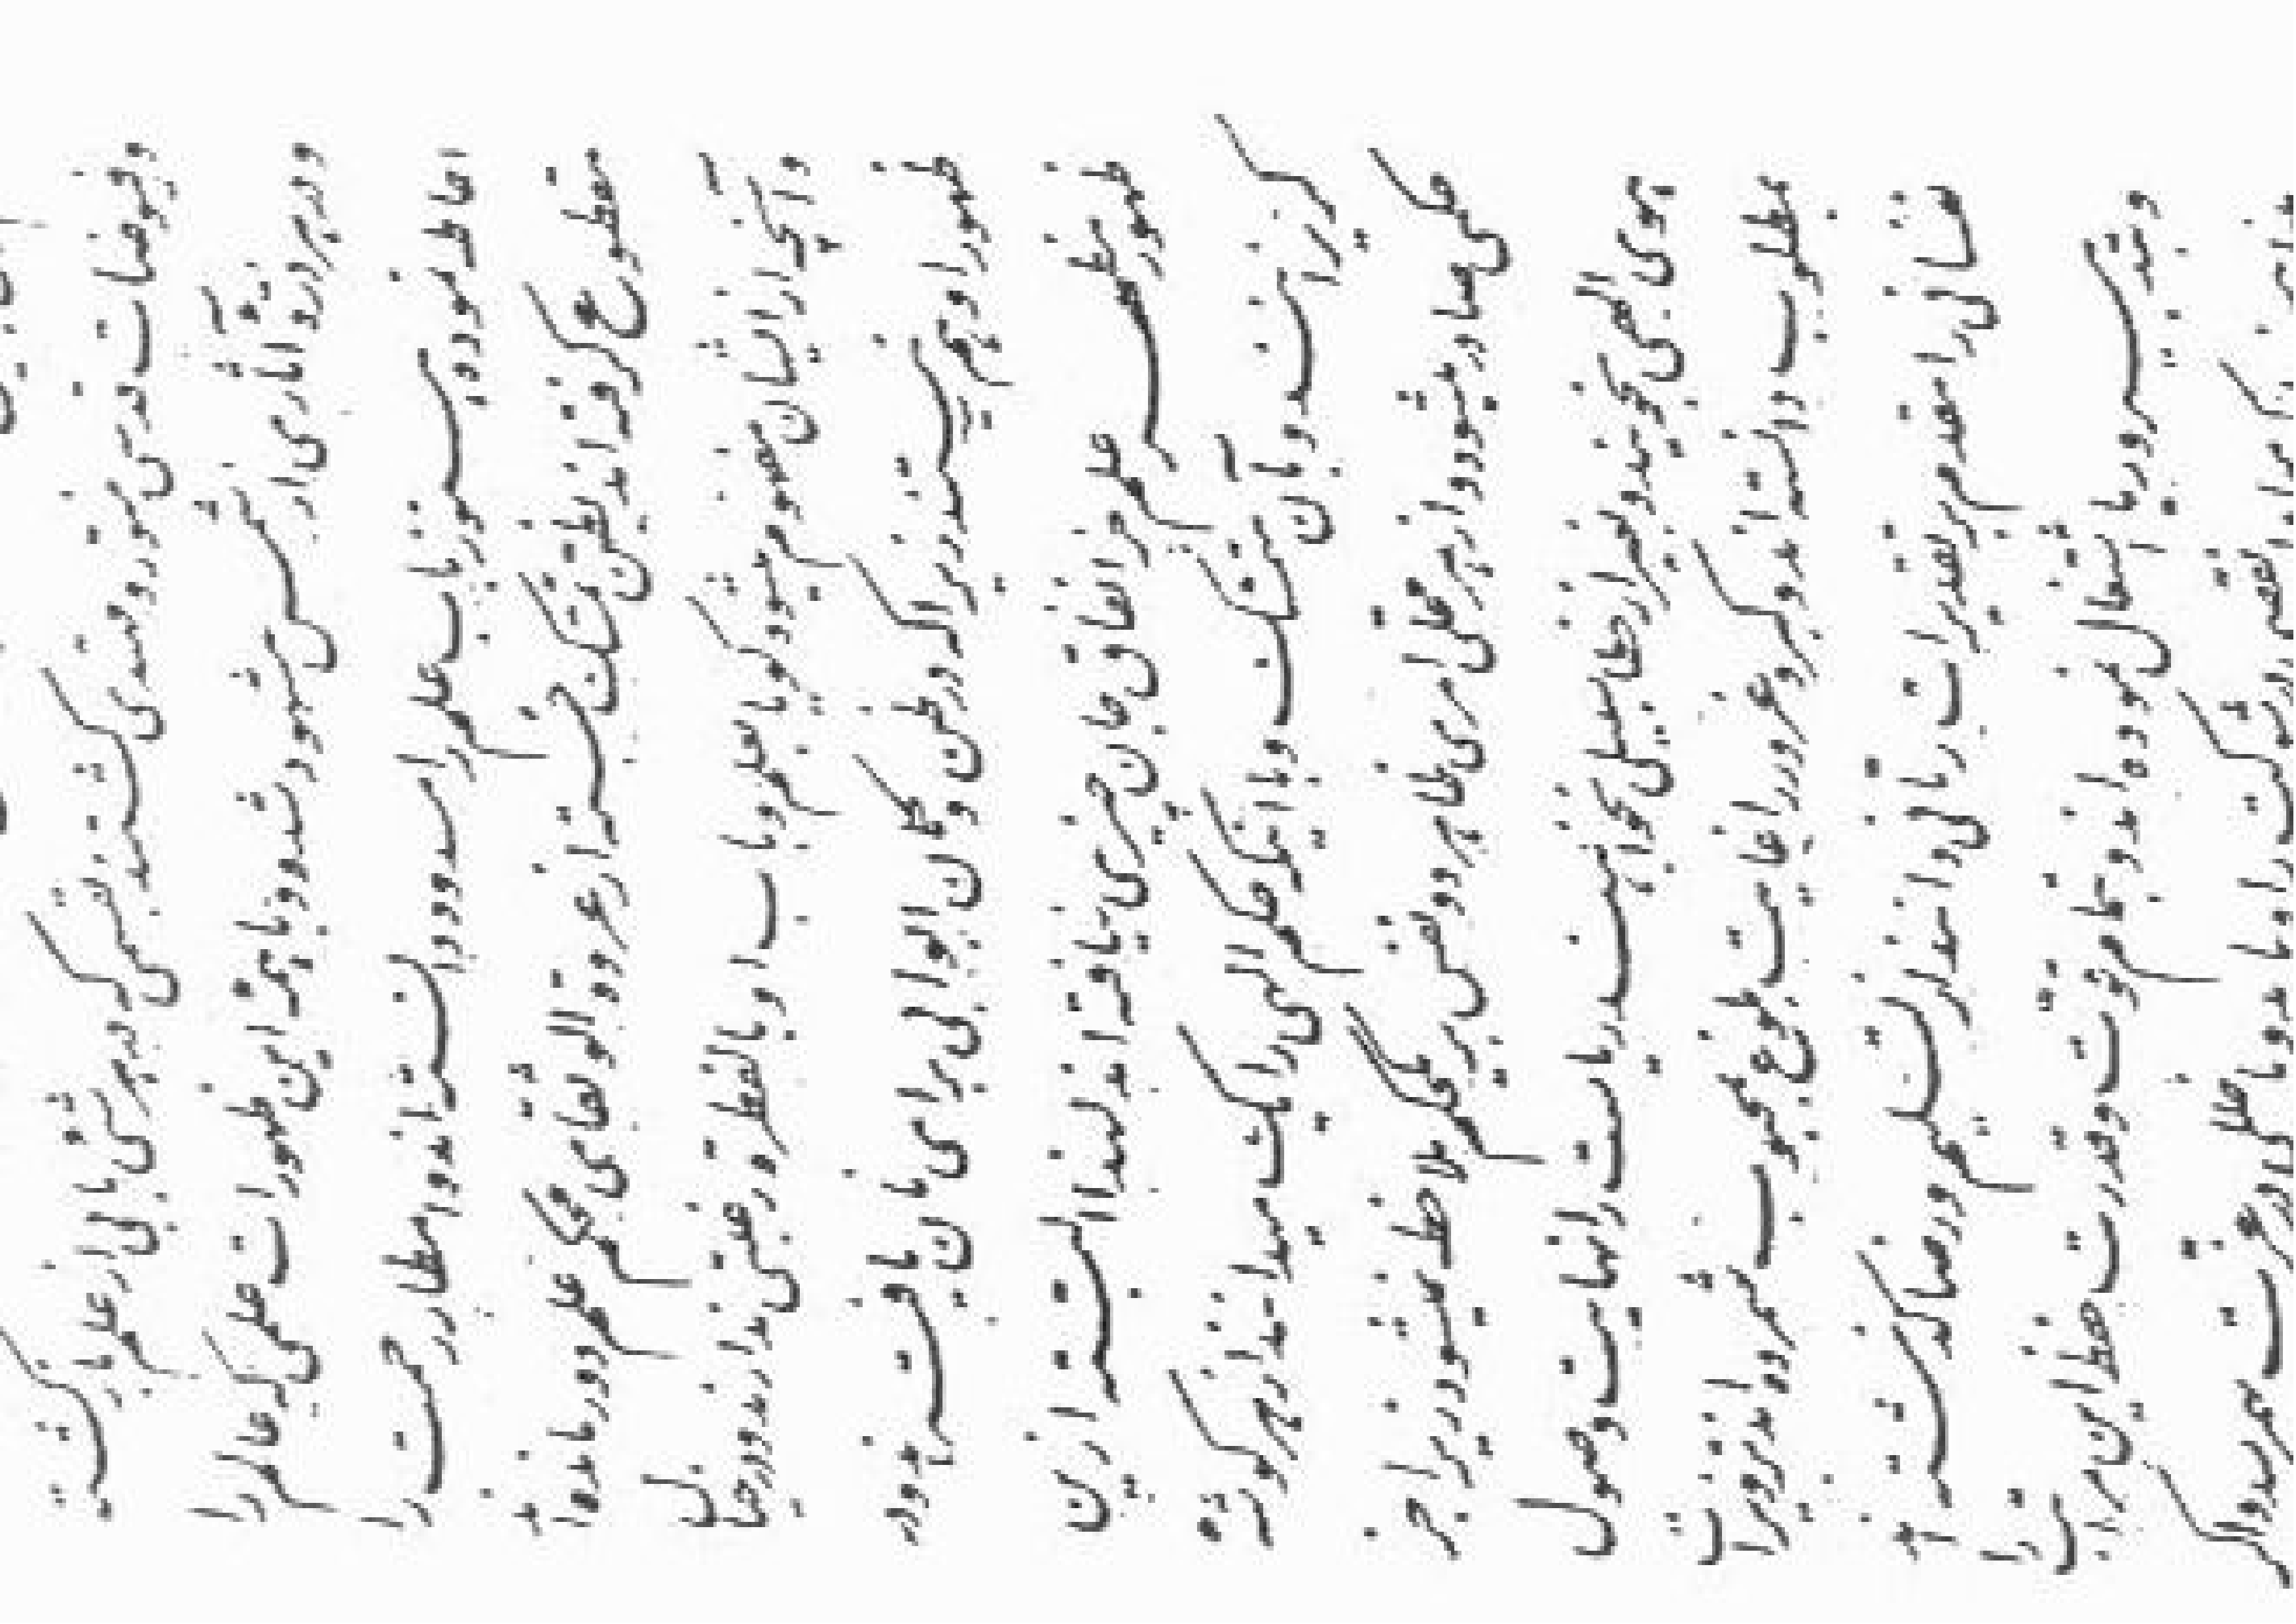 وفیوضات قدسی منور و مهتدی گشتند بقسمی که در هر شئ بابی از علم بازگشته
و در هر ذره آثاری از شمس مشهود شد و با همه این ظهورات علمی که عالم را
احاطه نموده هنوز باب علم را مسدود دانسته‌اند و امطار رحمت را
مقطوع گرفته‌اند بظن تمسک جسته از عروة الوثقای محکم علم دور مانده‌اند
و آنچه از ایشان مفهوم میشود گویا بعلم و باب او بالفطرة رغبتی ندارند و در خیال
ظهور او هم نیستند زیرا که در ظن و گمان ابوابی برای نان یافته‌اند و در
ظهور مظهر علم جز انفاق جان چیزی نیافته‌اند لهذا البته از این
گریزانند و بآن متمسک و با اینکه حکم الهی را یک میدانند از هر گوشهٴ
حکمی صادر میشود و از هر محلی امری ظاهر دو نفس بر یک حکم ملاحظه نمیشود زیرا جز
هوی الهی نجویند و بغیر از خطا سبیلی نخواهند ریاست را نهایت وصول
بمطلوب دانسته‌اند و کبر و غرور را غایت بلوغ بمحبوب شمرده‌اند تزویرات
نفسانی را مقدم بر تقدیرات ربانی دانند از تسلیم و رضا گذشته‌اند
و بتدبیر و ریا اشتغال نموده‌اند و بتمام قوت و قدرت حفظ این مراتب را